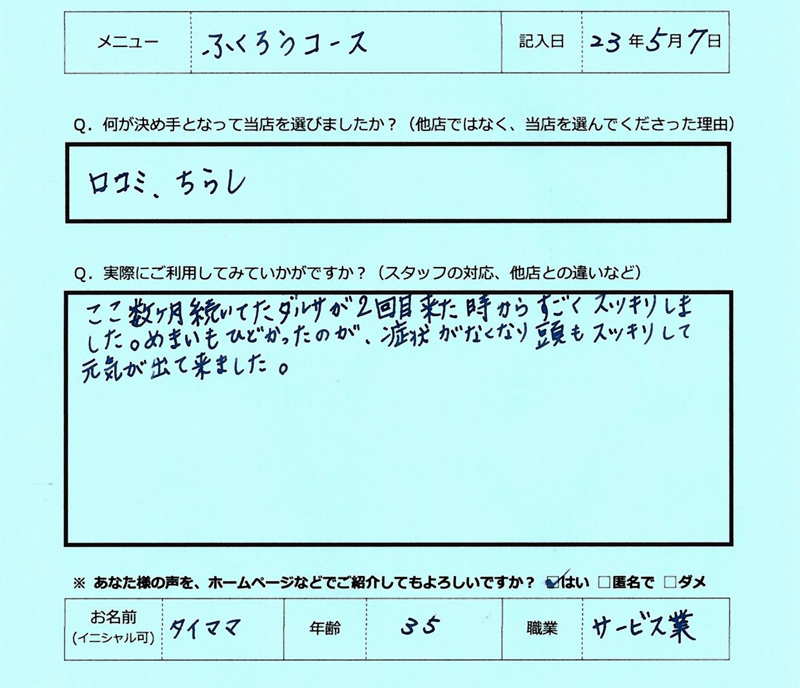 メニュー ふくろうコース 記入日 23年5月7日
Q. 何が決め手となって当店を選びましたか？（他店ではなく、当店を選んでくださった理由）
口コミ、ちらし
Q. 実際にご利用してみていかがですか？（スタッフの対応、他店との違いなど）
ここ数ヶ月続いてたダルサが2回目来た時からすごくスッキリしま
した。めまいもひどかったのが、症状がなくなり頭もスッキリして
元気が出て来ました。
※ あなた様の声を、ホームページなどでご紹介してもよろしいですか？ ☑はい □匿名で □ダメ
お名前 タイママ 年齢 35 職業 サービス業
(イニシャル可)